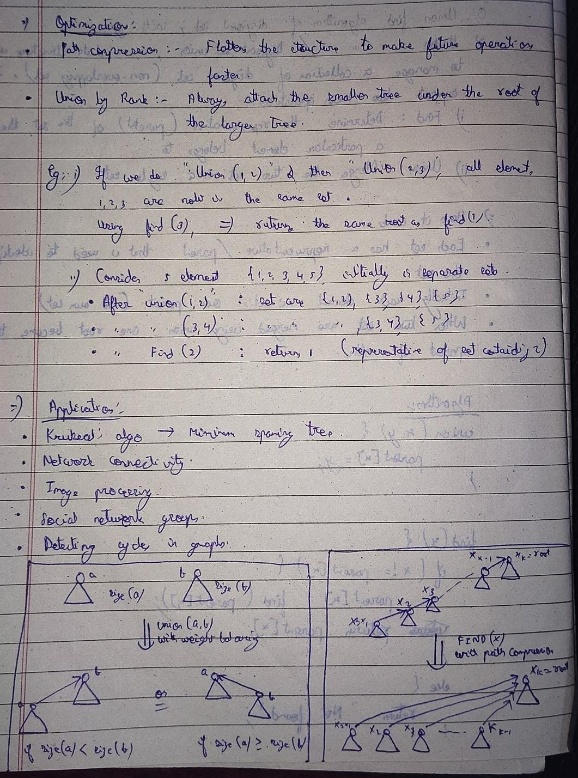 => Optimization:
• Path compression :- Flatten the structure to make future operation
faster
• Union by Rank :- Always attach the smaller tree under the root of
the larger tree.
Eg:- i) If we do "Union (1,2)" & then "Union (2,3)", all element,
1,2,3 are now in the same set.
Using find (3), => return the same root as find(1)
ii) Consider 5 element {1,2,3,4,5} initially is separate sets.
• After "union (1,2)" : set are {1,2}, {3} {4} {5}
• " " (3,4) : " " {3,4} {5}
• " Find (2) : return 1 (representative of set containing 2)
=> Application:
• Kruskal's algo → Minimum spaning tree.
• Network connectivity.
• Image processing.
• Social network groups.
• Detecting cycles in graphs.
a size(a) b size(b)
union (a,b)
with weight balancing
b or a b
if size(a) < size(b) if size(a) ≥ size(b)
x_{k-1} x_k = root
x_3
x_2
x=x_1
FIND(x)
with path compression
x_k = root
x=x_1 x_2 x_3 ---- k_{k-1}